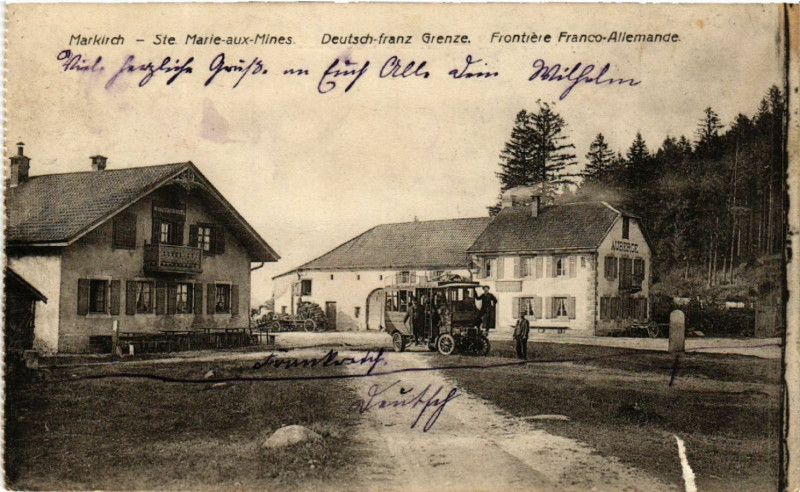 Markirch – Ste. Marie-aux-Mines. Deutsch-franz Grenze. Frontière Franco-Allemande.
Viele herzliche Grüße an Euch Alle Dein Wilhelm
AUBERGE
Frankreich.
Deutsch